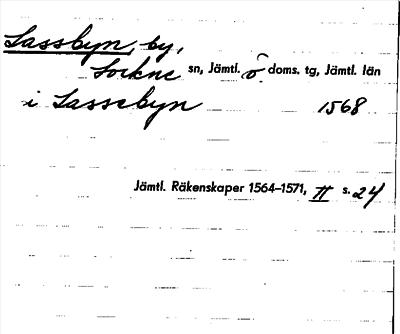 Sassbyn, by,
Lockne sn, Jämtl. ö. doms. tg, Jämtl. län
i Sassebyn 1568
Jämtl. Räkenskaper 1564–1571, II s. 24